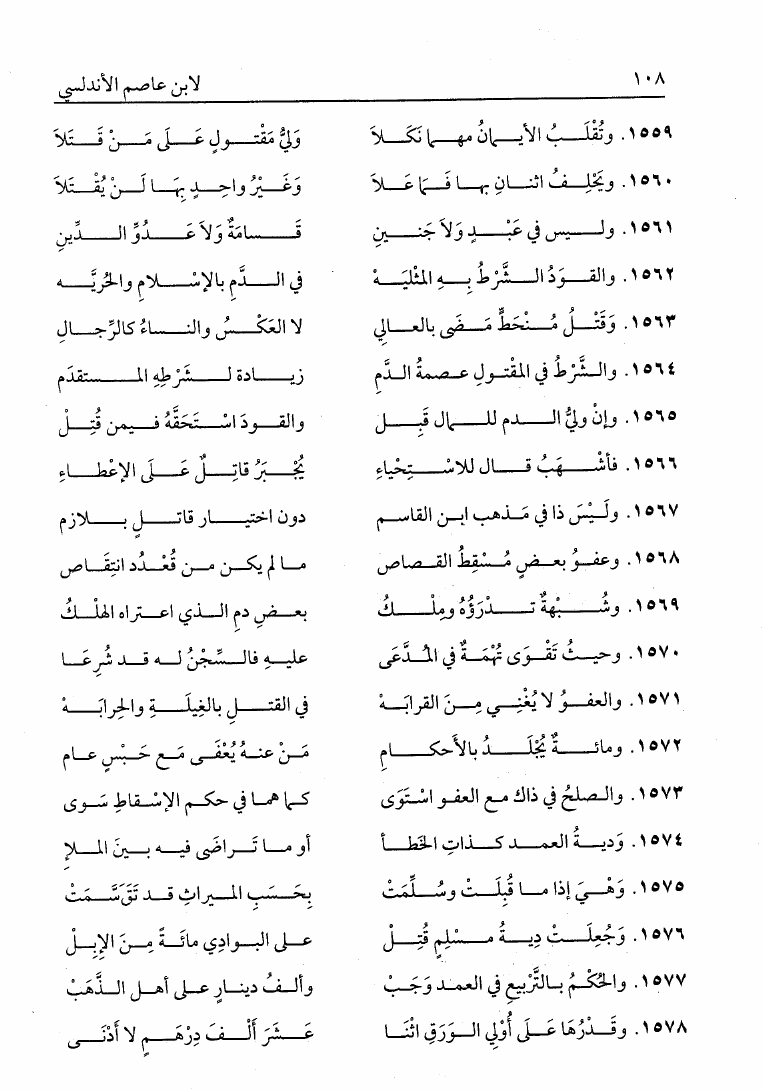 ١٠٨ لابن عاصم الأندلسي
١٥٥٩. وتُقْلَبُ الأيمانُ مهما نَكَلاَ وَليُّ مَقْتولٍ عَلَى مَنْ قَتَلاَ
١٥٦٠. ويَحْلِفُ اثنانِ بها فَمَا عَلاَ وَغَيْرُ واحِدٍ بِهَا لَنْ يُقْتَلاَ
١٥٦١. وليس في عَبْدٍ وَلاَ جَنينِ قَسامَةٌ وَلاَ عَدُوِّ الدِّينِ
١٥٦٢. والقوَدُ الشَّرْطُ بِهِ المثْليَّهْ في الدَّمِ بالإسْلامِ والحُريَّه
١٥٦٣. وَقَتْلُ مُنْحَطٍّ مَضَى بالعالي لا العَكْسُ والنساءُ كالرِّجالِ
١٥٦٤. والشَّرْطُ في المقْتولِ عصمةُ الدَّمِ زيادة لشَرْطِهِ المستقدَمِ
١٥٦٥. وإنْ وليُّ الدم للمال قَبِلْ والقودَ اسْتَحَقَّهُ فيمن قُتِلْ
١٥٦٦. فأشْهَبُ قال للاسْتِحْياءِ يُجْبَرُ قاتِلٌ عَلَى الإعْطاءِ
١٥٦٧. وليْسَ ذا في مَذهب ابن القاسم دون اختيار قاتلٍ بلازم
١٥٦٨. وعفوُ بعضٍ مُسْقِطُ القصاص ما لم يكن من قُعْدُد انتِقَاص
١٥٦٩. وشُبْهَةٌ تَدْرَؤُهُ ومِلْكُ بعضِ دمِ الذي اعتراه الهلْكُ
١٥٧٠. وحيثُ تَقْوَى تُهْمَةٌ في المُدَّعَى عليهِ فالسِّجْنُ له قد شُرِعَا
١٥٧١. والعفوُ لا يُغْنِي مِنَ القرابَهْ في القتلِ بالغِيلَةِ والحِرابَهْ
١٥٧٢. ومائةٌ يُجْلَدُ بالأحكامِ مَنْ عنهُ يُعْفَى مَع حَبْسِ عامِ
١٥٧٣. والصلحُ في ذاك مع العفو اسْتَوَى كما هما في حكم الإسْقاطِ سَوى
١٥٧٤. وَديةُ العمد كذاتِ الخطأ أو ما تَراضَى فيه بينَ الملإ
١٥٧٥. وَهْيَ إذا ما قُبِلَتْ وسُلِّمَتْ بِحَسَبِ الميراثِ قد تَقَسَّمَتْ
١٥٧٦. وَجُعلَتْ ديةُ مسْلِمٍ قُتِلْ على البوادي مائةً مِنَ الإبِلْ
١٥٧٧. والحُكْمُ بالتَّرْبيعِ في العمد وَجَبْ وألفُ دينارٍ على أهلِ الذَّهَبْ
١٥٧٨. وقَدْرُهَا عَلَى أُوْلي الوَرِقِ اثنَا عَشَرَ أَلْفَ دِرْهَمٍ لا أَدْنَى